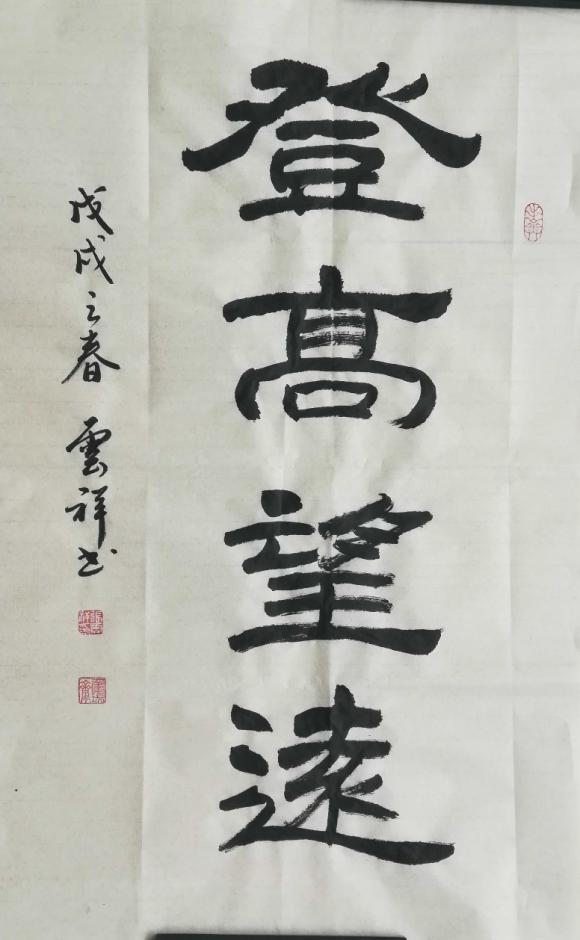 登高望遠
戊戌之春 雲祥书